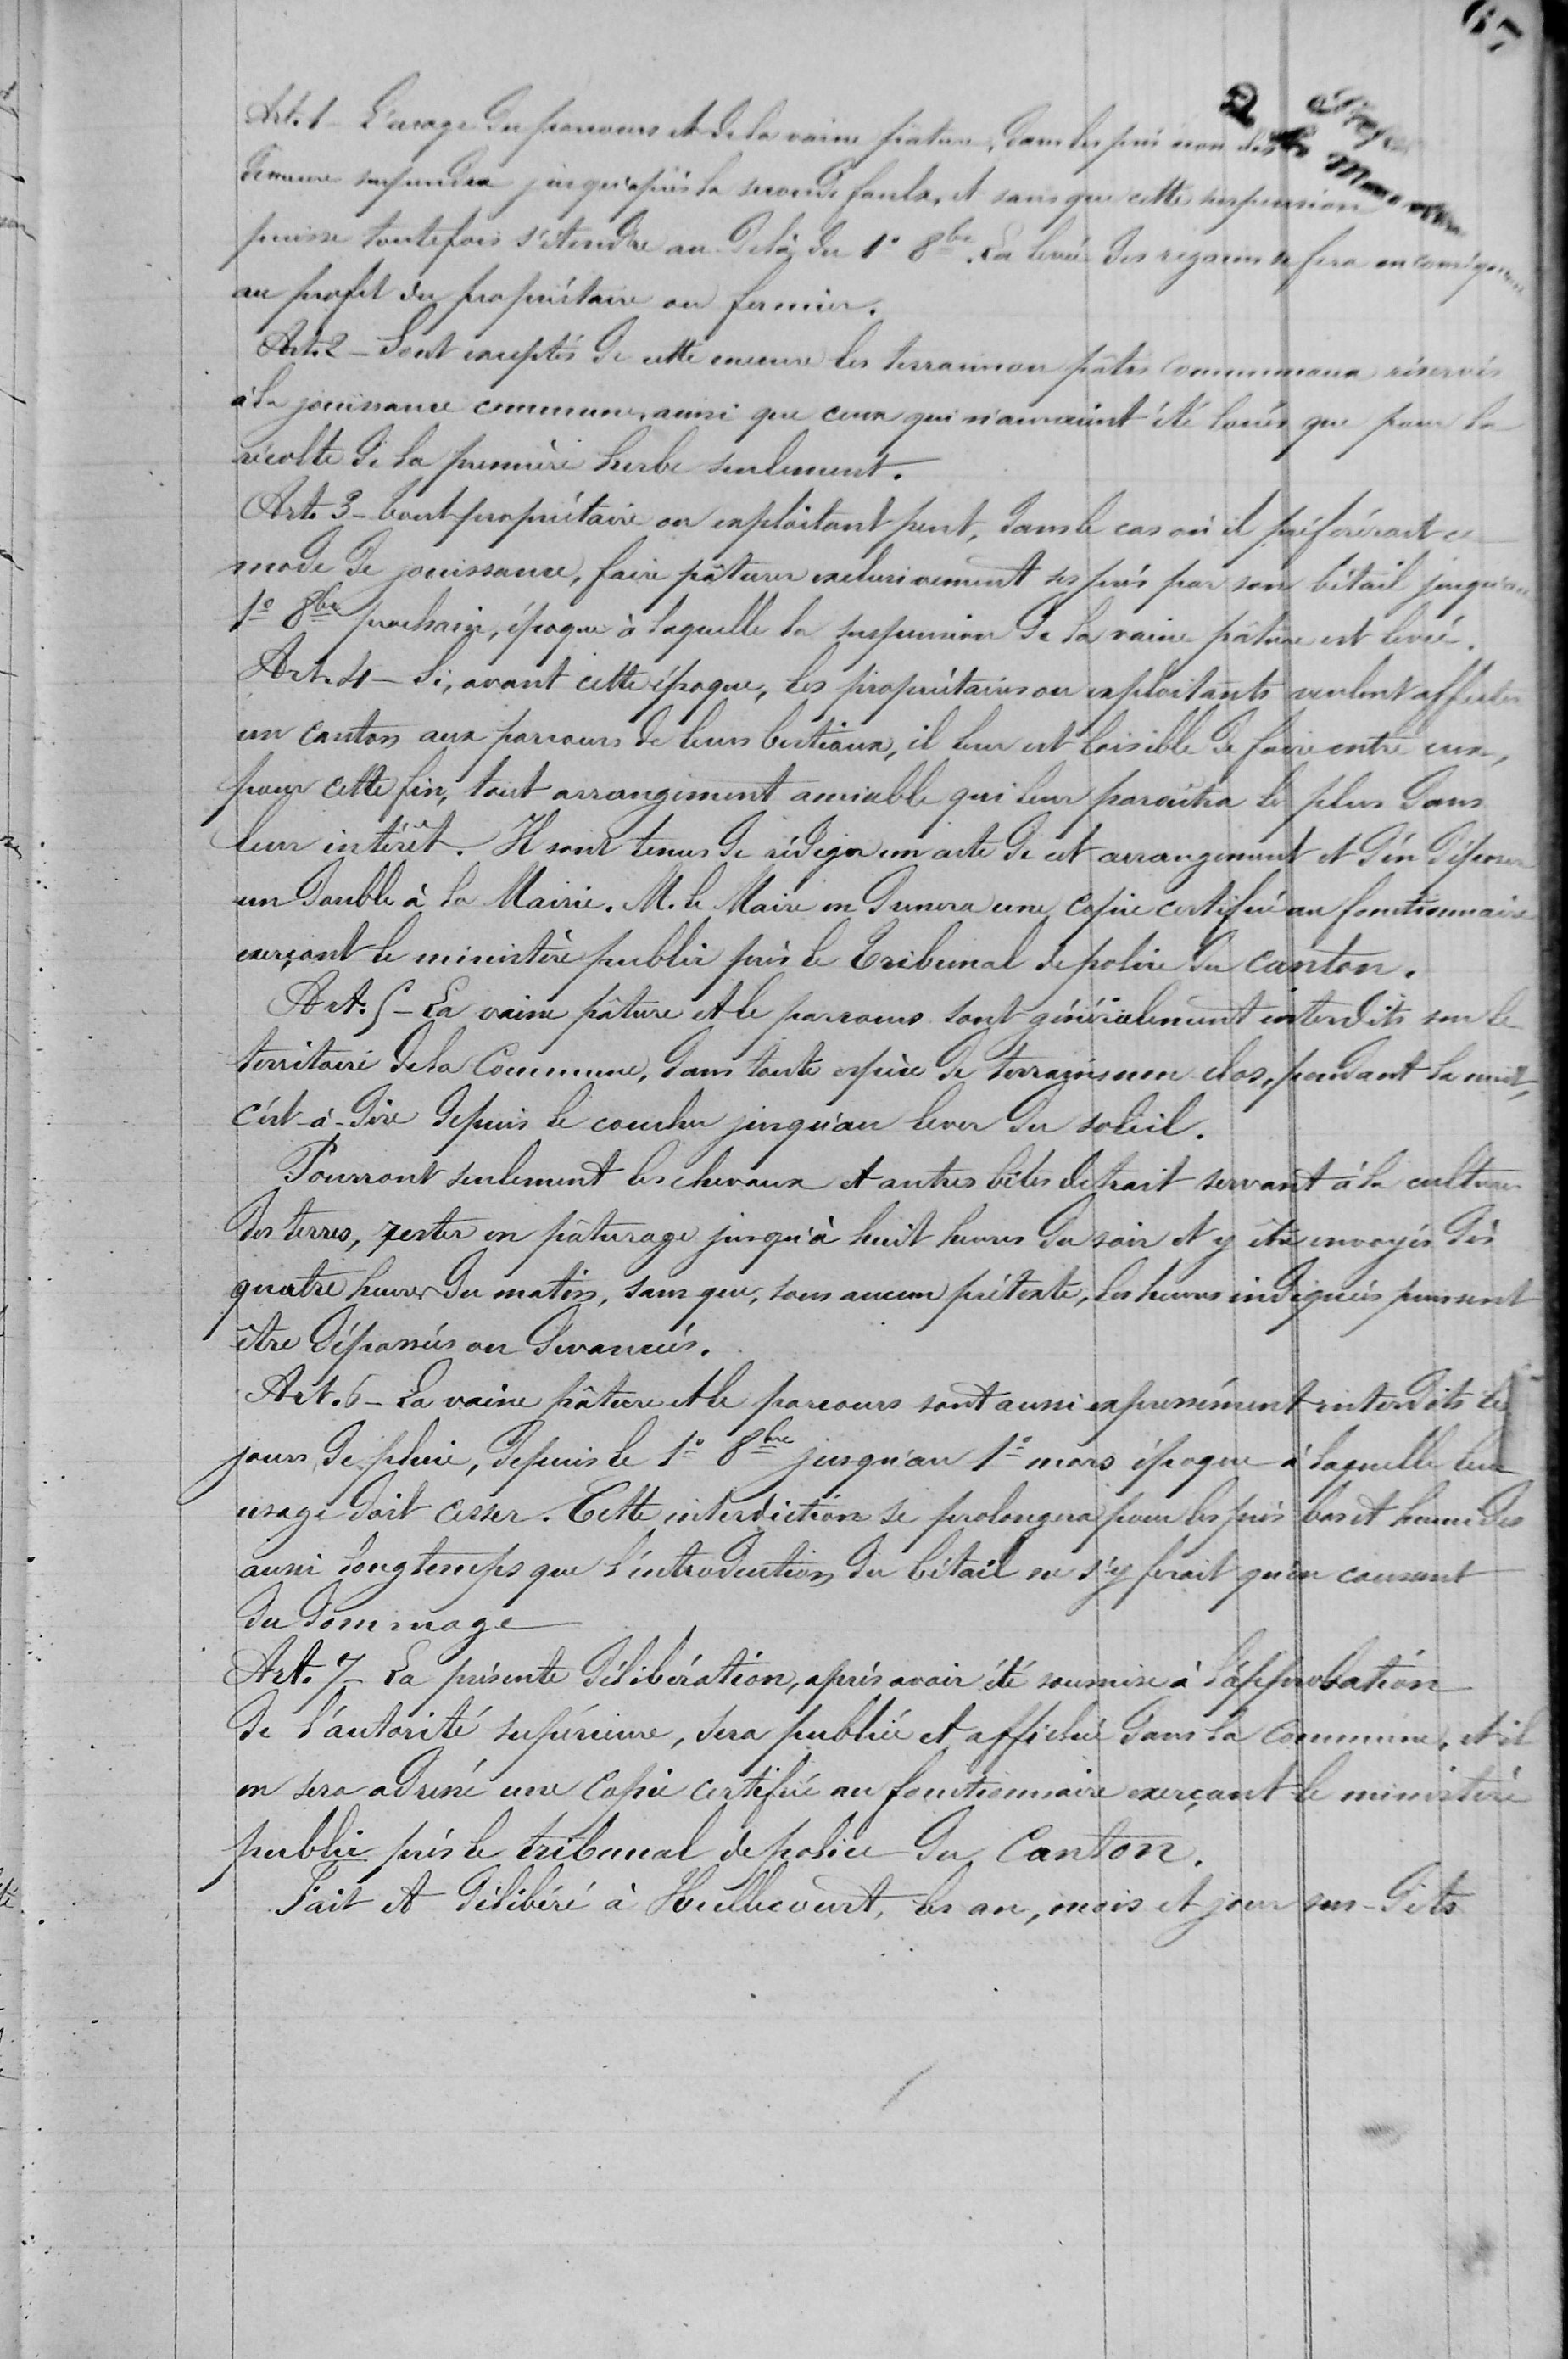 67
Art. 1 - L'usage du parcours et de la vaine pâture, dans les prés non clos
demeure suspendu jusqu'après la seconde faulx, et sans que cette suspension
puisse toutefois s'étendre au-delà du 1º 8bre. La levée des regains se fera en conséquence
au profit du propriétaire ou fermier.
Art. 2 - Sont exceptés de cette mesure les terrains ou pâtis communaux réservés
à la jouissance commune, ainsi que ceux qui n'auraient été loués que pour la
récolte de la première herbe seulement.
Art. 3 - tout propriétaire ou exploitant peut, dans le cas où il préférerait ce
mode de jouissance, faire pâturer exclusivement ses prés par son bétail jusqu'au
1º 8bre prochain, époque à laquelle la suspension de la vaine pâture est levée.
Art. 4 - Si, avant cette époque, les propriétaires ou exploitants veulent affecter
un canton aux parcours de leurs bestiaux, il leur est loisible de faire entre eux,
pour cette fin, tout arrangement amiable qui leur paraîtra le plus dans
leur intérêt. Il sont tenus de rédiger un acte de cet arrangement et d'en déposer
un double à la Mairie. M. le Maire en donnera une copie certifiée au fonctionnaire
exerçant le ministère public près le Tribunal de police du canton.
Art. 5 - La vaine pâture et le parcours sont généralement interdits sur le
territoire de la Commune, dans toute espèce de terrains non clos, pendant la nuit,
c'est-à-dire depuis le coucher jusqu'au lever du soleil.
Pourront seulement les chevaux et autres bêtes de trait servant à la culture
des terres, rester en pâturage jusqu'à huit heures du soir et y être envoyés dès
quatre heures du matin, sans que, sous aucun prétexte, les heures indiquées puissent
être dépassées ou devancées.
Art. 6 - La vaine pâture et le parcours sont aussi expressément interdits les
jours de pluie, depuis le 1º 8bre jusqu'au 1º mars époque à laquelle leur
usage doit cesser. Cette interdiction se prolongera pour les prés bas et humides
aussi longtemps que l'introduction du bétail ne s'y ferait qu'en causant
du dommage
Art. 7 - La présente délibération, après avoir été soumise à l'approbation
de l'autorité supérieure, sera publiée et affichée dans la commune, et il
en sera adressé une copie certifiée au fonctionnaire exerçant le ministère
public près le tribunal de police du Canton.
Fait et délibéré à Huillecourt, les an, mois et jour sus-dits